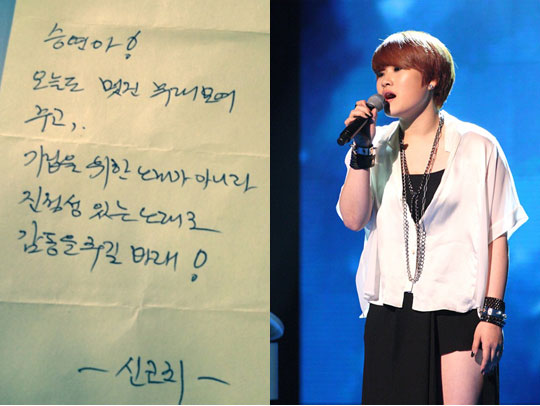 승연아!
오늘도 멋진 무대 보여
주고,.
기법을 위한 노래가 아니라
진정성 있는 노래로
감동을 주길 바래!